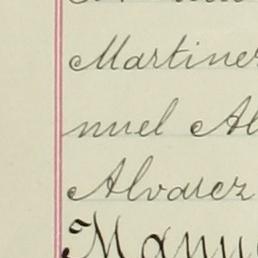 Martiner
nuel Al
Alvarez
Manu